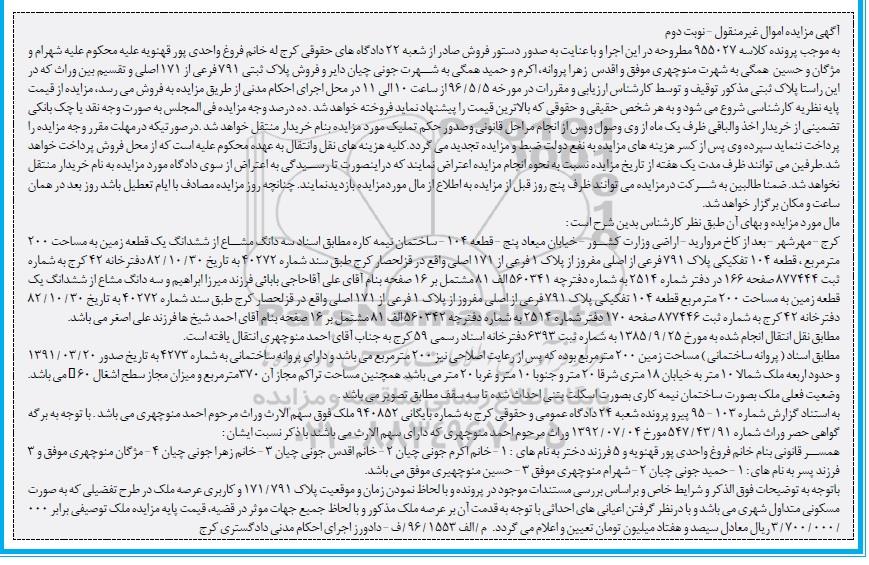 آگهی مزایده اموال غیرمنقول - نوبت دوم
به موجب پرونده کلاسه ۹۵۵۰۲۷ مطروحه در این اجرا و با عنایت به صدور دستور فروش صادر از شعبه ۲۲ دادگاه های حقوقی کرج له خانم فروغ واحدی پور قهنویه علیه محکوم علیه شهرام و
مژگان و حسین همگی به شهرت منوچهری موفق و اقدس زهرا پروانه، اکرم و حمید همگی به شهرت جونی چیان دایر و فروش پلاک ثبتی ۷۹۱ فرعی از ۱۷۱ اصلی و تقسیم بین وراث که در
این راستا پلاک ثبتی مذکور توقیف و توسط کارشناس ارزیابی و مقررات در مورخه ۹۶/۵/۵ از ساعت ۱۰ الی ۱۱ در محل اجرای احکام مدنی از طریق مزایده به فروش می رسد، مزایده از قیمت
پایه نظریه کارشناسی شروع می شود و به هر شخص حقیقی و حقوقی که بالاترین قیمت را پیشنهاد نماید فروخته خواهد شد. ده درصد وجه مزایده فی المجلس به صورت وجه نقد یا چک بانکی
تضمینی از خریدار اخذ والباقی ظرف یک ماه از وی وصول و پس از انجام مراحل قانونی و صدور حکم تملیک مورد مزایده بنام خریدار منتقل خواهد شد. در صورتیکه در مهلت مقرر وجه مزایده را
پرداخت ننماید سپرده وی پس از کسر هزینه های مزایده به نفع دولت ضبط و مزایده تجدید می گردد. کلیه هزینه های نقل وانتقال به عهده محکوم علیه است که از محل فروش پرداخت خواهد
شد. طرفین می توانند ظرف مدت یک هفته از تاریخ مزایده نسبت به نحوه انجام مزایده اعتراض نمایند که دراینصورت تا رسیدگی به اعتراض از سوی دادگاه مورد مزایده به نام خریدار منتقل
نخواهد شد. ضمنا طالبین به شرکت در مزایده می توانند ظرف پنج روز قبل از مزایده به اطلاع از مال مورد مزایده بازدید نمایند. چنانچه روز مزایده مصادف با ایام تعطیل باشد روز بعد در همان
ساعت و مکان برگزار خواهد شد.
مال مورد مزایده و بهای آن طبق نظر کارشناس بدین شرح است:
کرج - مهرشهر - بعد از کاخ مروارید - اراضی وزارت کشور - خیابان میعاد پنج - قطعه ۱۰۴ - ساختمان نیمه کاره مطابق اسناد سه دانگ مشاع از ششدانگ یک قطعه زمین به مساحت ۲۰۰
مترمربع، قطعه ۱۰۴ تفکیکی پلاک ۷۹۱ فرعی از اصلی مفروز از پلاک ۱ فرعی از ۱۷۱ اصلی واقع در قزلحصار کرج طبق سند شماره ۴۰۲۷۲ به تاریخ ۸۲/۱۰/۳۰ دفترخانه ۴۲ کرج به شماره
ثبت ۸۷۷۴۴۴ صفحه ۱۶۶ در دفتر شماره ۲۵۱۴ به شماره دفترچه ۵۶۰۳۴۱ الف ۸۱ مشتمل بر ۱۶ صفحه بنام آقای علی آقاحاجی بابائی فرزند میرزا ابراهیم و سه دانگ مشاع از ششدانگ یک
قطعه زمین به مساحت ۲۰۰ متر مربع قطعه ۱۰۴ تفکیکی پلاک ۷۹۱ فرعی از اصلی مفروز از پلاک ۱ فرعی از ۱۷۱ اصلی واقع در قزلحصار کرج طبق سند شماره ۴۰۲۷۲ به تاریخ ۸۲/۱۰/۳۰
دفترخانه ۴۲ کرج به شماره ثبت ۸۷۷۴۴۶ صفحه ۱۷۰ دفتر شماره ۲۵۱۴ به شماره دفترچه ۵۶۰۳۴۲ الف ۸۱ مشتمل بر ۱۶ صفحه بنام آقای احمد شیخ ها فرزند علی اصغر می باشد.
مطابق نقل انتقال انجام شده به مورخ ۱۳۸۵/۹/۲۵ به شماره ثبت ۶۳۹۳ دفترخانه اسناد رسمی ۵۹ کرج به جناب آقای احمد منوچهری انتقال یافته است.
مطابق اسناد (پروانه ساختمانی) مساحت زمین ۲۰۰ مترمربع بوده که پس از رعایت اصلاحی نیز ۲۰۰ مترمربع می باشد و دارای پروانه ساختمانی به شماره ۴۲۷۳ به تاریخ صدور ۱۳۹۱/۰۳/۲۰
و حدود اربعه ملک شمالا ۱۰ متر به خیابان ۱۸ متری شرقا ۲۰ متر و جنوبا ۱۰ متر و غربا ۲۰ متر می باشد. همچنین مساحت تراکم مجاز آن ۳۷۰ مترمربع و میزان مجاز سطح اشغال ۶۰ می باشد.
وضعیت فعلی ملک بصورت ساختمان نیمه کاری بصورت اسکلت بتنی احداث شده تا سه سقف مطابق تصویر می باشد.
به استناد گزارش شماره ۱۰۳ - ۹۵ پیرو پرونده شعبه ۲۴ دادگاه عمومی و حقوقی کرج به شماره بایگانی ۹۴۰۸۵۲ ملک فوق سهم الارث وراث مرحوم احمد منوچهری می باشد. با توجه به برگه
گواهی حصر وراث شماره ۵۴۷/۴۳/۹۱ مورخ ۱۳۹۲/۰۷/۰۴ وراث مرحوم احمد منوچهری که دارای سهم الارث می باشند با ذکر نسبت ایشان:
همسر قانونی بنام خانم فروغ واحدی پور قهنویه و ۵ فرزند دختر به نام های: ۱ - خانم اکرم جونی چیان ۲ - خانم اقدس جونی چیان ۳ - خانم زهرا جونی چیان ۴ - مژگان منوچهری موفق و ۳
فرزند پسر به نام های: ۱ - حمید جونی چیان ۲ - شهرام منوچهری موفق ۳ - حسین منوچهری موفق می باشد.
باتوجه به توضیحات فوق الذکر و شرایط خاص و براساس بررسی مستندات موجود در پرونده و با لحاظ نمودن زمان و موقعیت پلاک ۱۷۱/۷۹۱ و کاربری عرصه ملک در طرح تفضیلی که به صورت
مسکونی متداول شهری می باشد و با درنظر گرفتن اعیانی های احداثی با توجه به قدمت آن بر عرصه ملک مذکور و با لحاظ جمیع جهات موثر در قضیه، قیمت پایه مزایده ملک توصیفی برابر ۰۰۰
/۳/۷۰۰/۰۰۰ ریال معادل سیصد و هفتاد میلیون تومان تعیین و اعلام می گردد. م/الف ۹۶/۱۵۵۳/ف - دادورز اجرای احکام مدنی دادگستری کرج